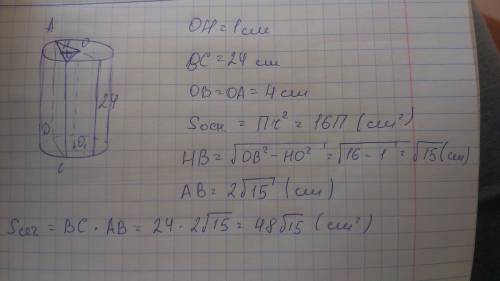 A
O
24
D
O₁
C
OH = 1 см
BC = 24 см
OB = OA = 4 см
Sосн = Пч² = 16П (см²)
HB = √OB² − HO² = √16 − 1 = √15 (см)
AB = 2√15 (см)
Sсег = BC · AB = 24 · 2√15 = 48√15 (см²)